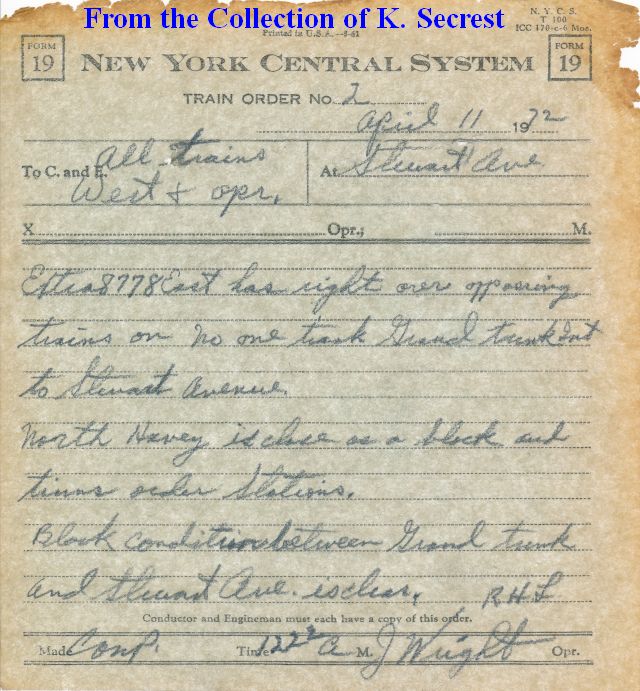 From the Collection of K. Secrest
N. Y. C. S.
T 100
ICC 170-c-6 Mos.
Printed in U.S.A.—8-61
FORM
19
NEW YORK CENTRAL SYSTEM
FORM
19
TRAIN ORDER No. 2
April 11 1972
To C. and E. All trains
West & opr.
At Stewart Ave
X Opr.; M.
Extra 8778 East has right over opposing
trains on No one track Grand trunk Jct
to Stewart Avenue.
North Harvey is close as a block and
trains order Stations.
Block condition between Grand trunk
and Stewart Ave. is clear. R H L
Conductor and Engineman must each have a copy of this order.
Made Comp. Time 1222 A M. J Wright Opr.